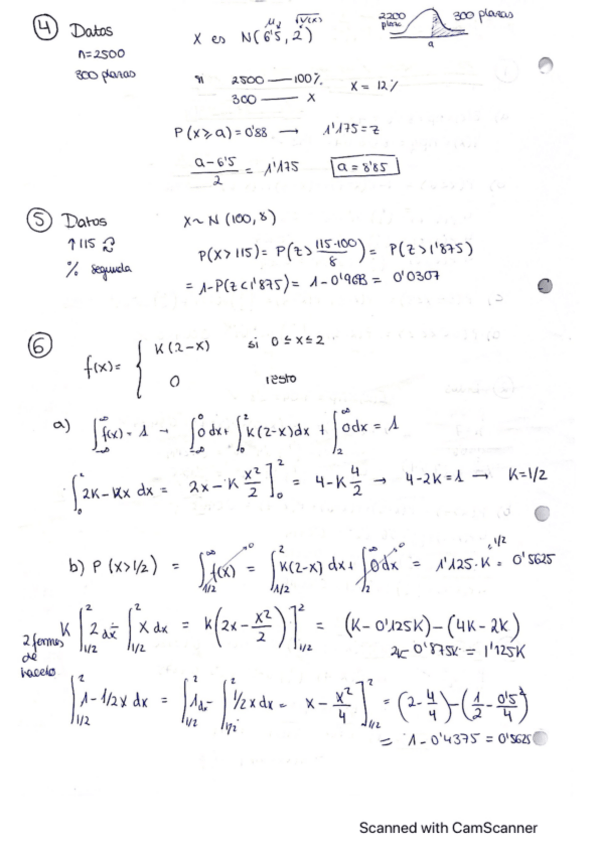 ④ Datos
n=2500
300 plazas
X es N(6'5, 2)
μ √V(x)
2200 plazas 300 plazas
a
n 2500 — 100%
300 — X
X = 12%
P(X⩾a)=0'88 → 1'175=Z
(a-6'5)/2 = 1'175 a = 8'85
⑤ Datos
↑115
% segunda
X~N(100,8)
P(X>115) = P(Z> (115-100)/8) = P(Z>1'875)
= 1-P(Z<1'875) = 1-0'9693 = 0'0307
⑥
f(x)= { K(2-X) si 0≤x≤2
0 resto
a) ∫_{-∞}^{∞} f(x) = 1 → ∫_{-∞}^{0} 0dx + ∫_{0}^{2} K(2-x)dx + ∫_{2}^{∞} 0dx = 1
∫_{0}^{2} 2K-Kx dx = 2x-K x²/2 ]_{0}^{2} = 4-K 4/2 → 4-2K=1 → K=1/2
b) P(X>1/2) = ∫_{1/2}^{∞} f(x) = ∫_{1/2}^{2} K(2-x)dx + ∫_{2}^{∞} 0dx = 1'125·K = 0'5625
1/2
2 formas de hacerlo
K ∫_{1/2}^{2} 2dx - ∫_{1/2}^{2} X dx = K(2x - x²/2) ]_{1/2}^{2} = (K-0'125K)-(4K-2K)
2K-0'875K = 1'125K
∫_{1/2}^{2} 1-1/2x dx = ∫_{1/2}^{2} 1dx - ∫_{1/2}^{2} 1/2x dx = x - x²/4 ]_{1/2}^{2} = (2-4/4)-(1/2-0'5²/4)
= 1-0'4375 = 0'5625
Scanned with CamScanner